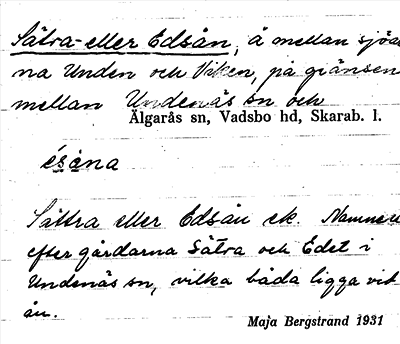 Sätra- eller Edsån, å mellan sjöar
na Unden och Viken, på gränsen
mellan Undenäs sn och
Älgarås sn, Vadsbo hd, Skarab. l.
ésȧna
Sättra eller Edsån ek. Namnen
efter gårdarna Sätra och Edet i
Undenäs sn, vilka båda ligga vid
ån.
Maja Bergstrand 1931